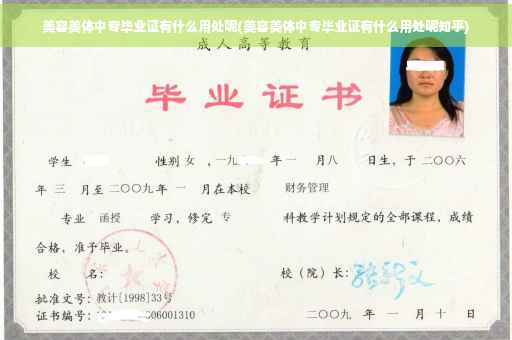 美容美体中专毕业证有什么用处呢(美容美体中专毕业证有什么用处呢知乎)
成人高等教育
毕业证书
学生 性别 女 ，一九 年一 月八 日生，于二〇〇六
年 三 月至二〇〇九年 一 月在本校 财务管理
专业 函授 学习，修完 专 科教学计划规定的全部课程，成绩
合格，准予毕业。
校 名： 校（院）长：
批准文号：教计[1998]33号
证书编号： 06001310 二〇〇九 年 一 月 十 日